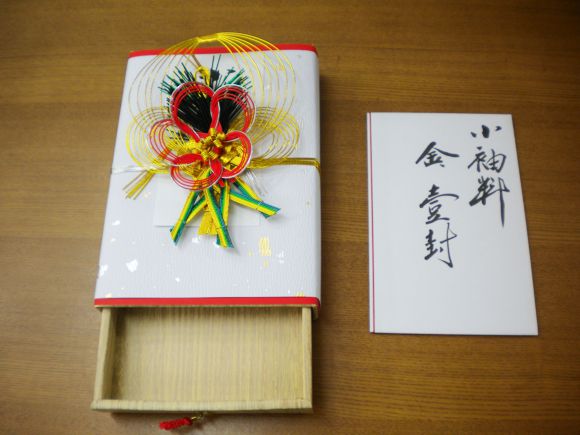 小袖料
金壹封